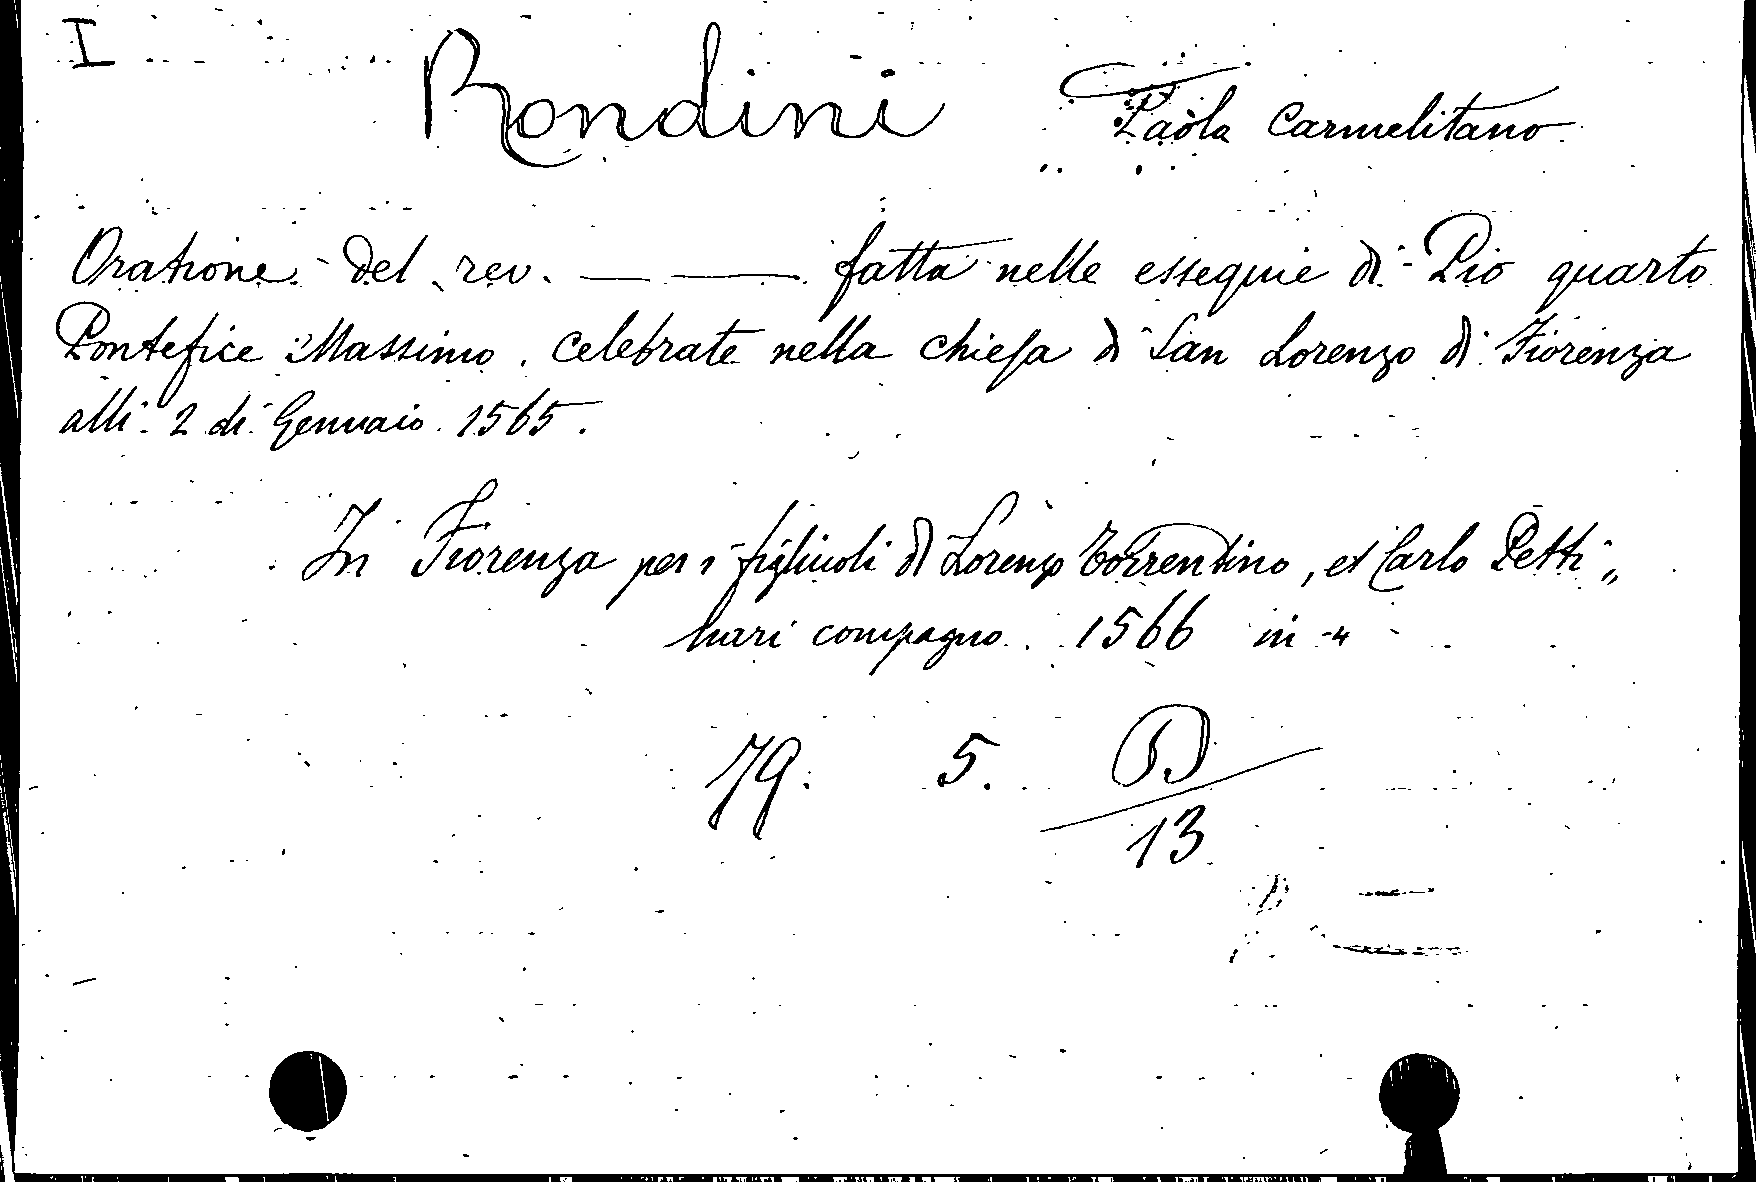 I
Rondini Paola Carmelitano
Oratione del rev. — — fatta nelle essequie di Pio quarto
Pontefice Massimo. celebrate nella chiesa di San Lorenzo di Fiorenza
alli 2 di Gennaio 1565.
In Fiorenza per i figliuoli di Lorenzo Torrentino, et Carlo Petti„
nari compagno. 1566 in-4
79. 5. D
13